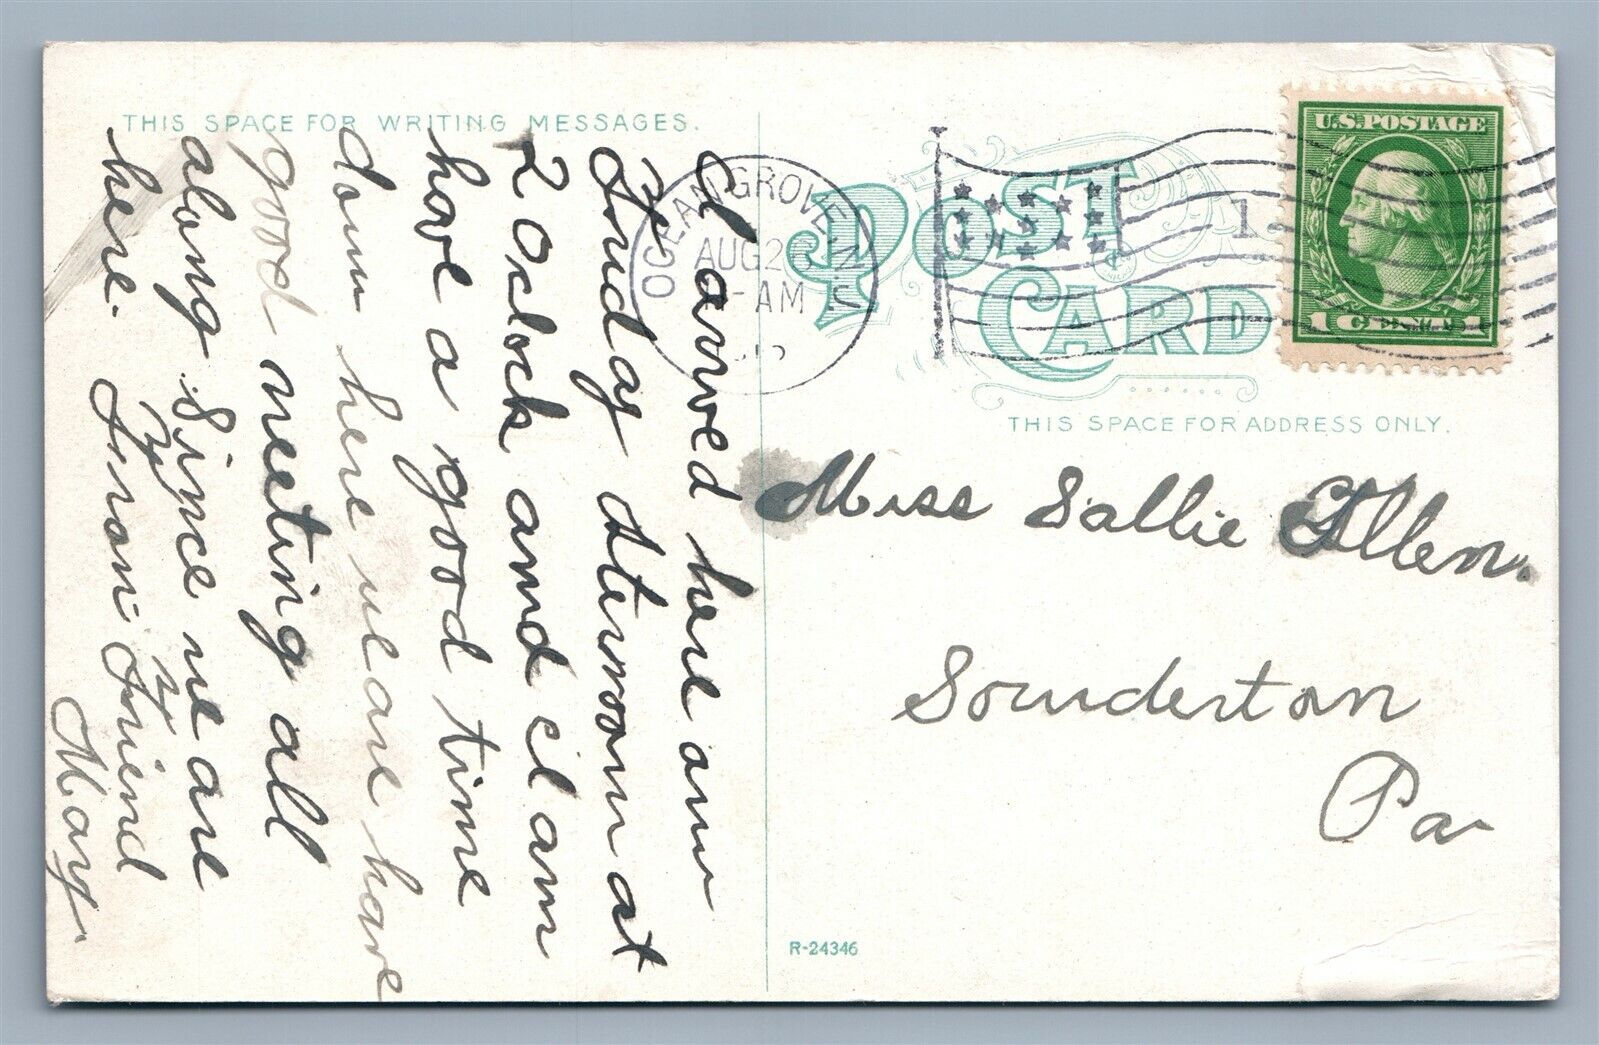 THIS SPACE FOR WRITING MESSAGES.
I arived here am
Friday afternoon at
2 Oclock and i am
have a good time
down here we are have
good meeting all
along Since we are
here. From Friend
Mary.
OCEAN GROVE, N.J.
AUG 2
-AM
1
POST CARD
U.S. POSTAGE
1 CENT 1
THIS SPACE FOR ADDRESS ONLY.
Miss Sallie Allem.
Souderton
Pa
R-24346